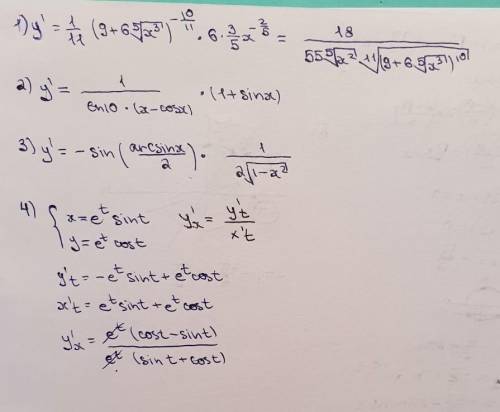 1) y' = 1/11 (9+6 ⁵√x³)^(-10/11) · 6 · 3/5 x^(-2/5) = 18 / (55 ⁵√x² ¹¹√((9+6 ⁵√x³)¹⁰))
2) y' = 1 / (ln10 · (x-cosx)) · (1+sinx)
3) y' = -sin (arcsinx / 2) · 1 / (2√(1-x²))
4) { x=e^t sint y'ₓ = y't / x't
y=e^t cost
y't = -e^t sint + e^t cost
x't = e^t sint + e^t cost
y'ₓ = e^t (cost-sint) / e^t (sint+cost)